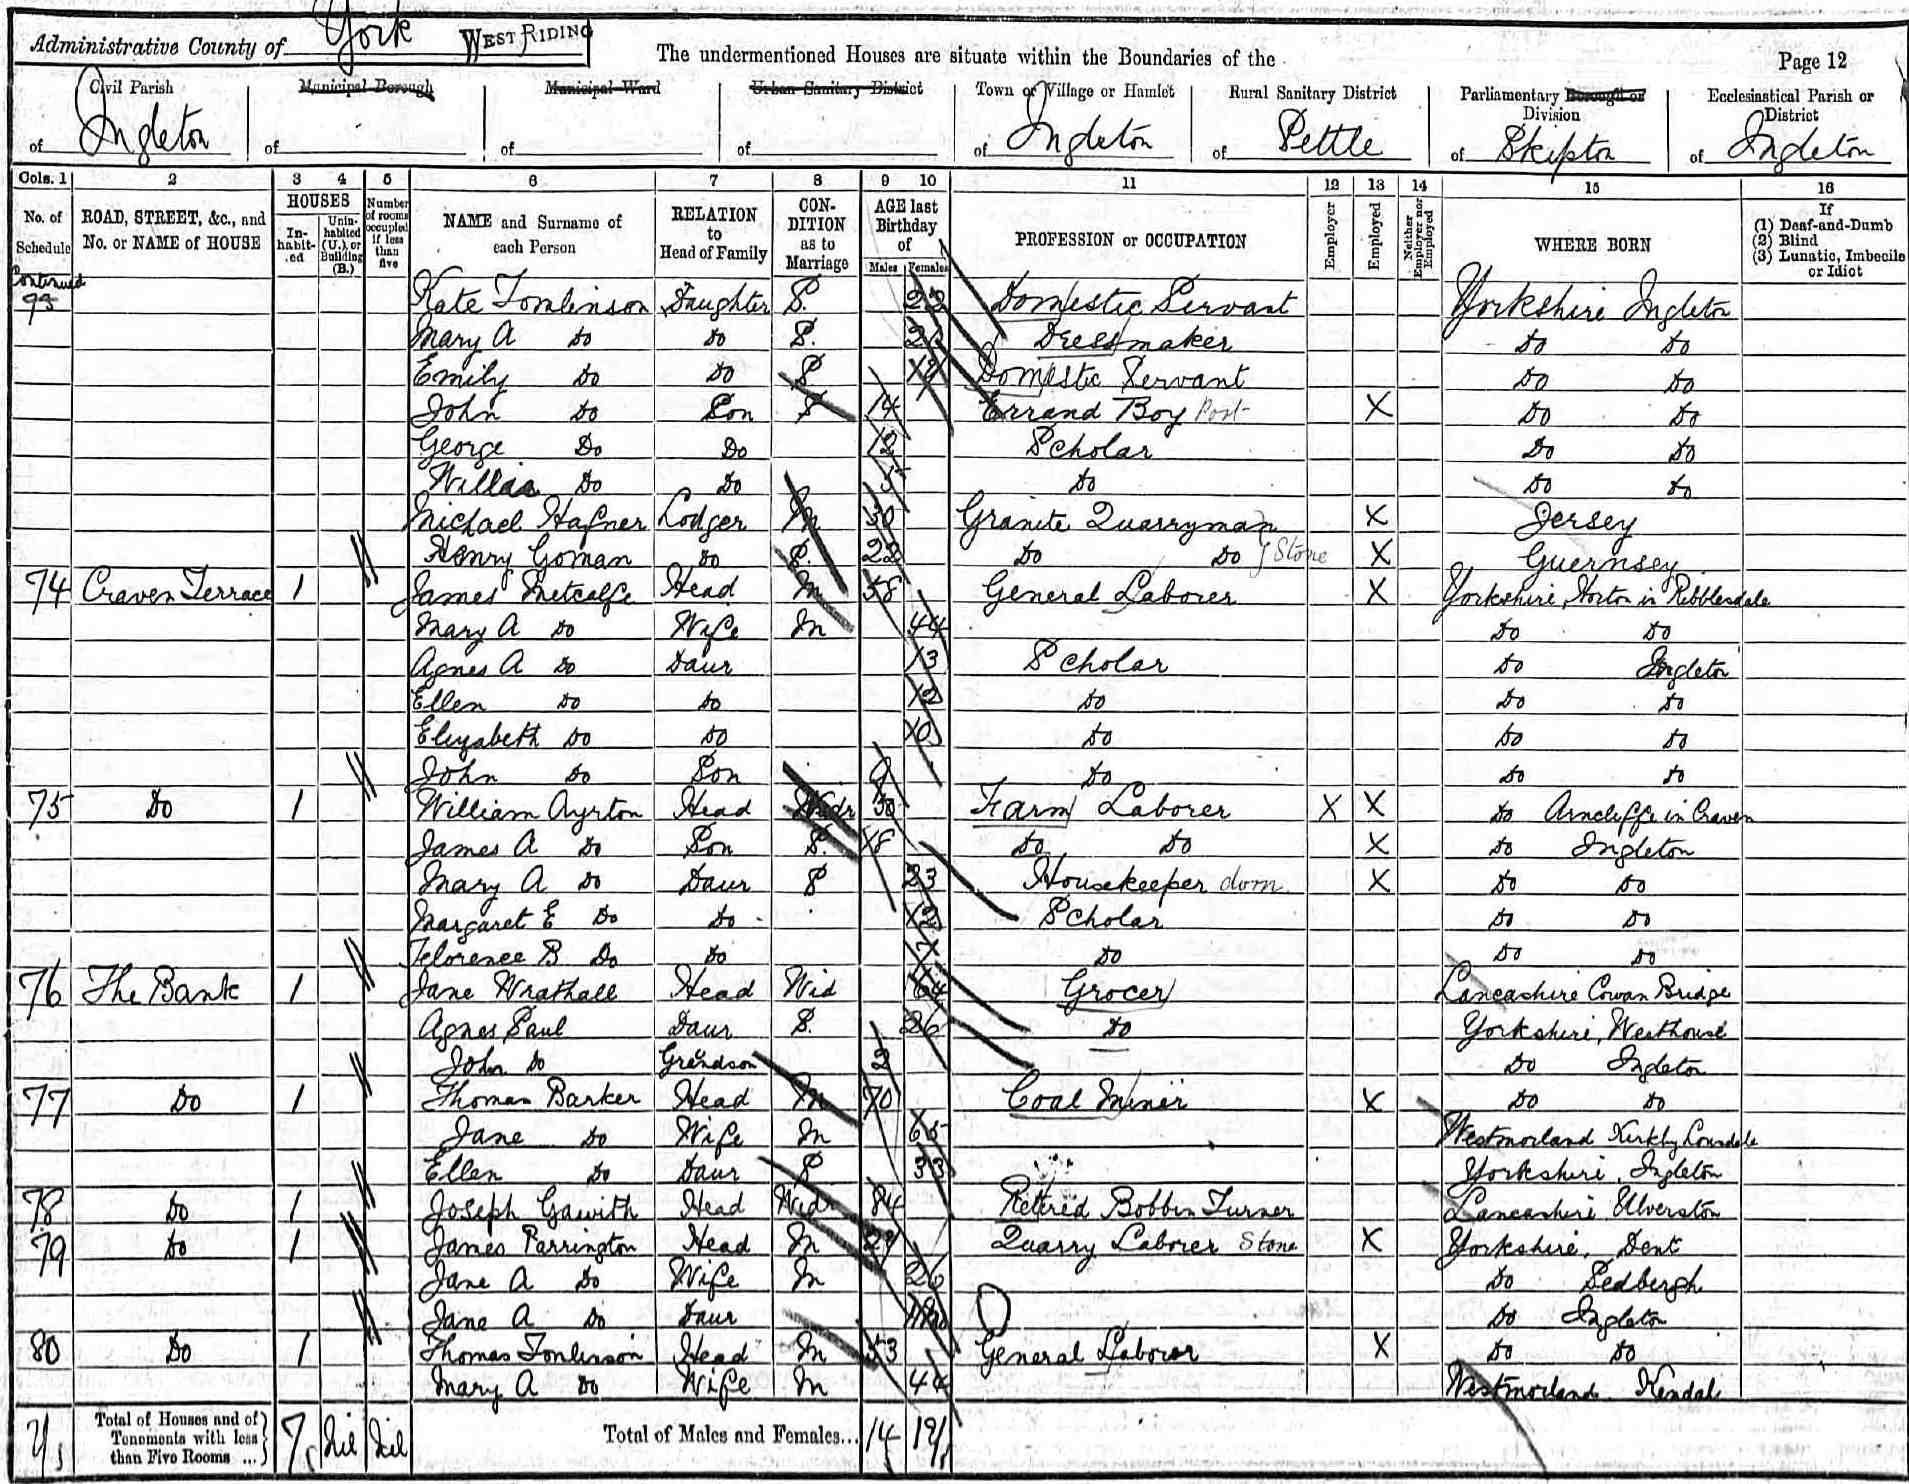 Administrative County of York WEST RIDING
The undermentioned Houses are situate within the Boundaries of the
Page 12
Civil Parish of Ingleton
Municipal Borough of
Municipal Ward of
Urban Sanitary District of
Town or Village or Hamlet of Ingleton
Rural Sanitary District of Settle
Parliamentary Borough or Division of Skipton
Ecclesiastical Parish or District of Ingleton
Cols. 1 2 3 4 5 6 7 8 9 10 11 12 13 14 15 16
No. of Schedule
ROAD, STREET, &c., and No. or NAME of HOUSE
HOUSES
In-habit-ed
Unin-habited (U.), or Building (B.)
Number of rooms occupied if less than five
NAME and Surname of each Person
RELATION to Head of Family
CON-DITION as to Marriage
AGE last Birthday of
Males Females
PROFESSION or OCCUPATION
Employer
Employed
Neither Employer nor Employed
WHERE BORN
If
(1) Deaf-and-Dumb
(2) Blind
(3) Lunatic, Imbecile or Idiot
Continued
Kate Tomlinson Daughter S. Domestic Servant Yorkshire Ingleton
Mary A Do Do S. Dressmaker Do Do
Emily Do Do S 19 Domestic Servant Do Do
John Do Son S 14 Errand Boy Post X Do Do
George Do Do 12 Scholar Do Do
Do Do 5 Do Do Do
Michael Hafner Lodger M 30 Granite Quarryman X Jersey
Henry Goman Do S. 22 Do Do } Stone X Guernsey
74 Craven Terrace 1 James Metcalfe Head M 58 General Laborer X Yorkshire, Horton in Ribblesdale
Mary A Do Wife M 44 Do Do
Agnes A Do Daur 13 Scholar Do Ingleton
Ellen Do Do 12 Do Do Do
Elizabeth Do Do 10 Do Do Do
John Do Son 9 Do Do Do
75 Do 1 William Ayrton Head Widr 50 Farm Laborer X X Do Arncliffe in Craven
James A Do Son S. 18 Do Do X Do Ingleton
Mary A Do Daur S 23 Housekeeper dom X Do Do
Margaret E Do Do 12 Scholar Do Do
Florence B Do Do Do Do Do
76 The Bank 1 Jane Wrathall Head Wid 64 Grocer Lancashire Cowan Bridge
Agnes Saul Daur S. 26 Do Yorkshire, Westhouse
John Do Grandson 2 Do Ingleton
77 Do 1 Thomas Barker Head M 70 Coal Miner X Do Do
Jane Do Wife M 65 Westmorland Kirkby Lonsdale
Ellen Do Daur S 33 Yorkshire, Ingleton
78 Do 1 Joseph Gawith Head Widr 84 Retired Bobbin Turner Lancashire Ulverston
79 Do 1 James Parrington Head M 29 Quarry Laborer Stone X Yorkshire, Dent
Jane A Do Wife M 26 Do Sedbergh
Jane A Do Daur Do Ingleton
80 Do 1 Thomas Tomlinson Head M 53 General Laborer X Do Do
Mary A Do Wife M 44 Westmorland Kendal
Total of Houses and of Tenements with less than Five Rooms ... 7 Nil Nil Total of Males and Females... 14 19